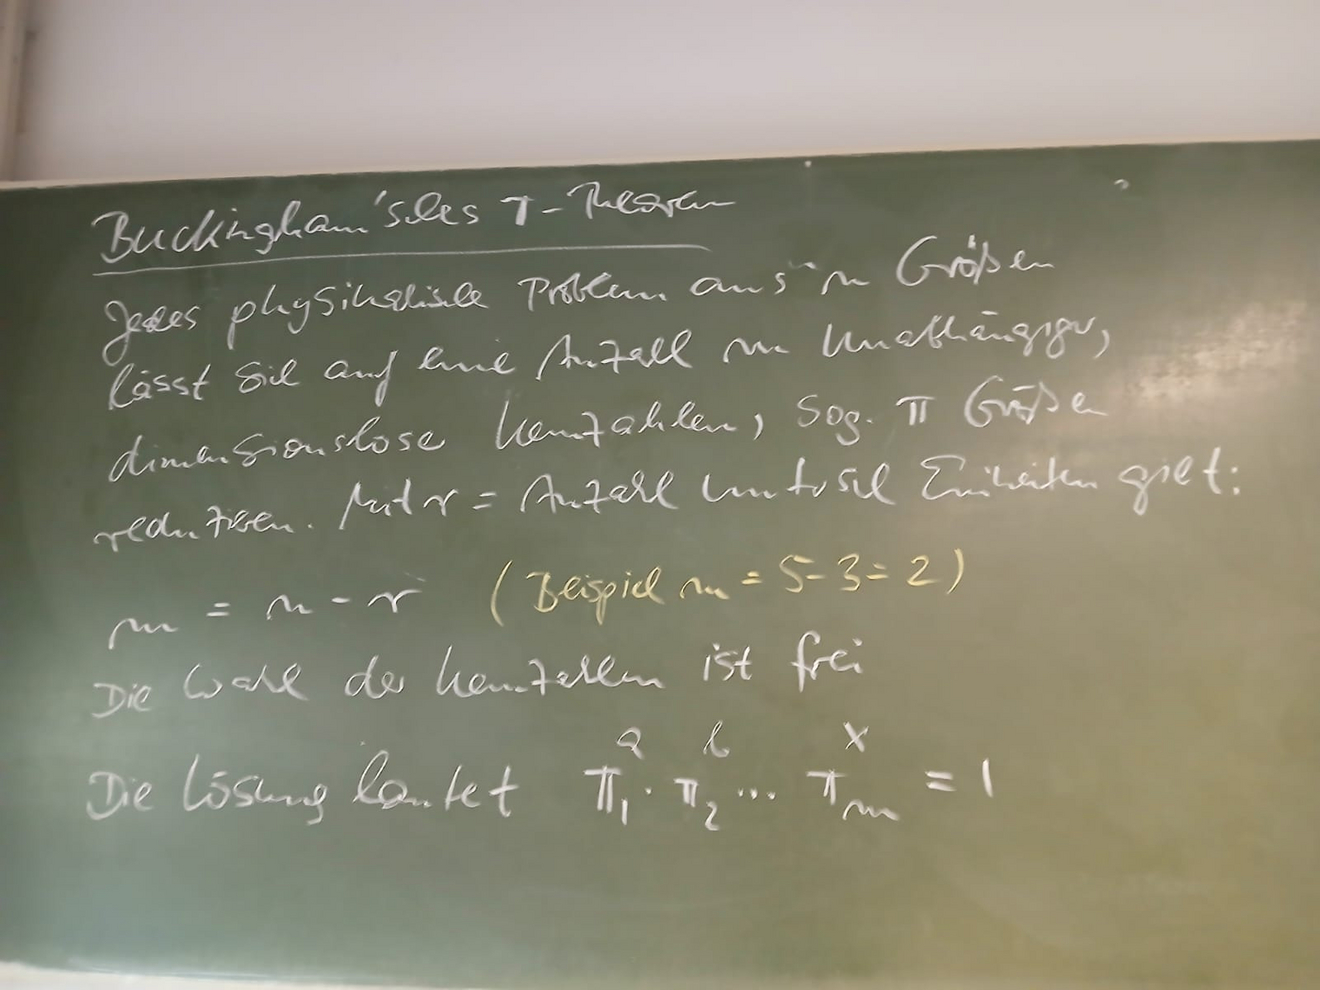 Buckingham'sches π-Theorem
Jedes physikalische Problem aus n Größen
lässt sich auf eine Anzahl m unabhängiger,
dimensionslose Kennzahlen, sog. π Größen
reduzieren. Mit r = Anzahl Einheiten gilt:
m = n - r (Beispiel m = 5-3=2)
Die Wahl der Kennzahlen ist frei
Die Lösung lautet π₁ᵃ · π₂ᵇ ... πₘˣ = 1